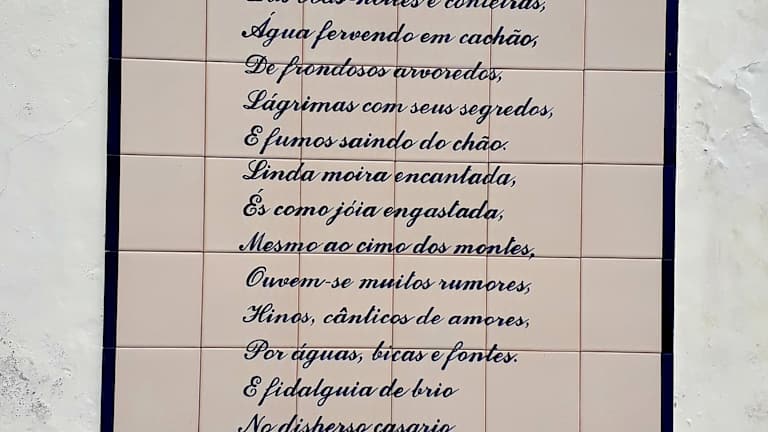 Das boas-noites e conteiras,
Água fervendo em cachão,
De frondosos arvoredos,
Lágrimas com seus segredos,
E fumos saindo do chão.
Linda moira encantada,
És como jóia engastada,
Mesmo ao cimo dos montes,
Ouvem-se muitos rumores,
Hinos, cânticos de amores,
Por águas, bicas e fontes.
E fidalguia de brio
No disperso casario